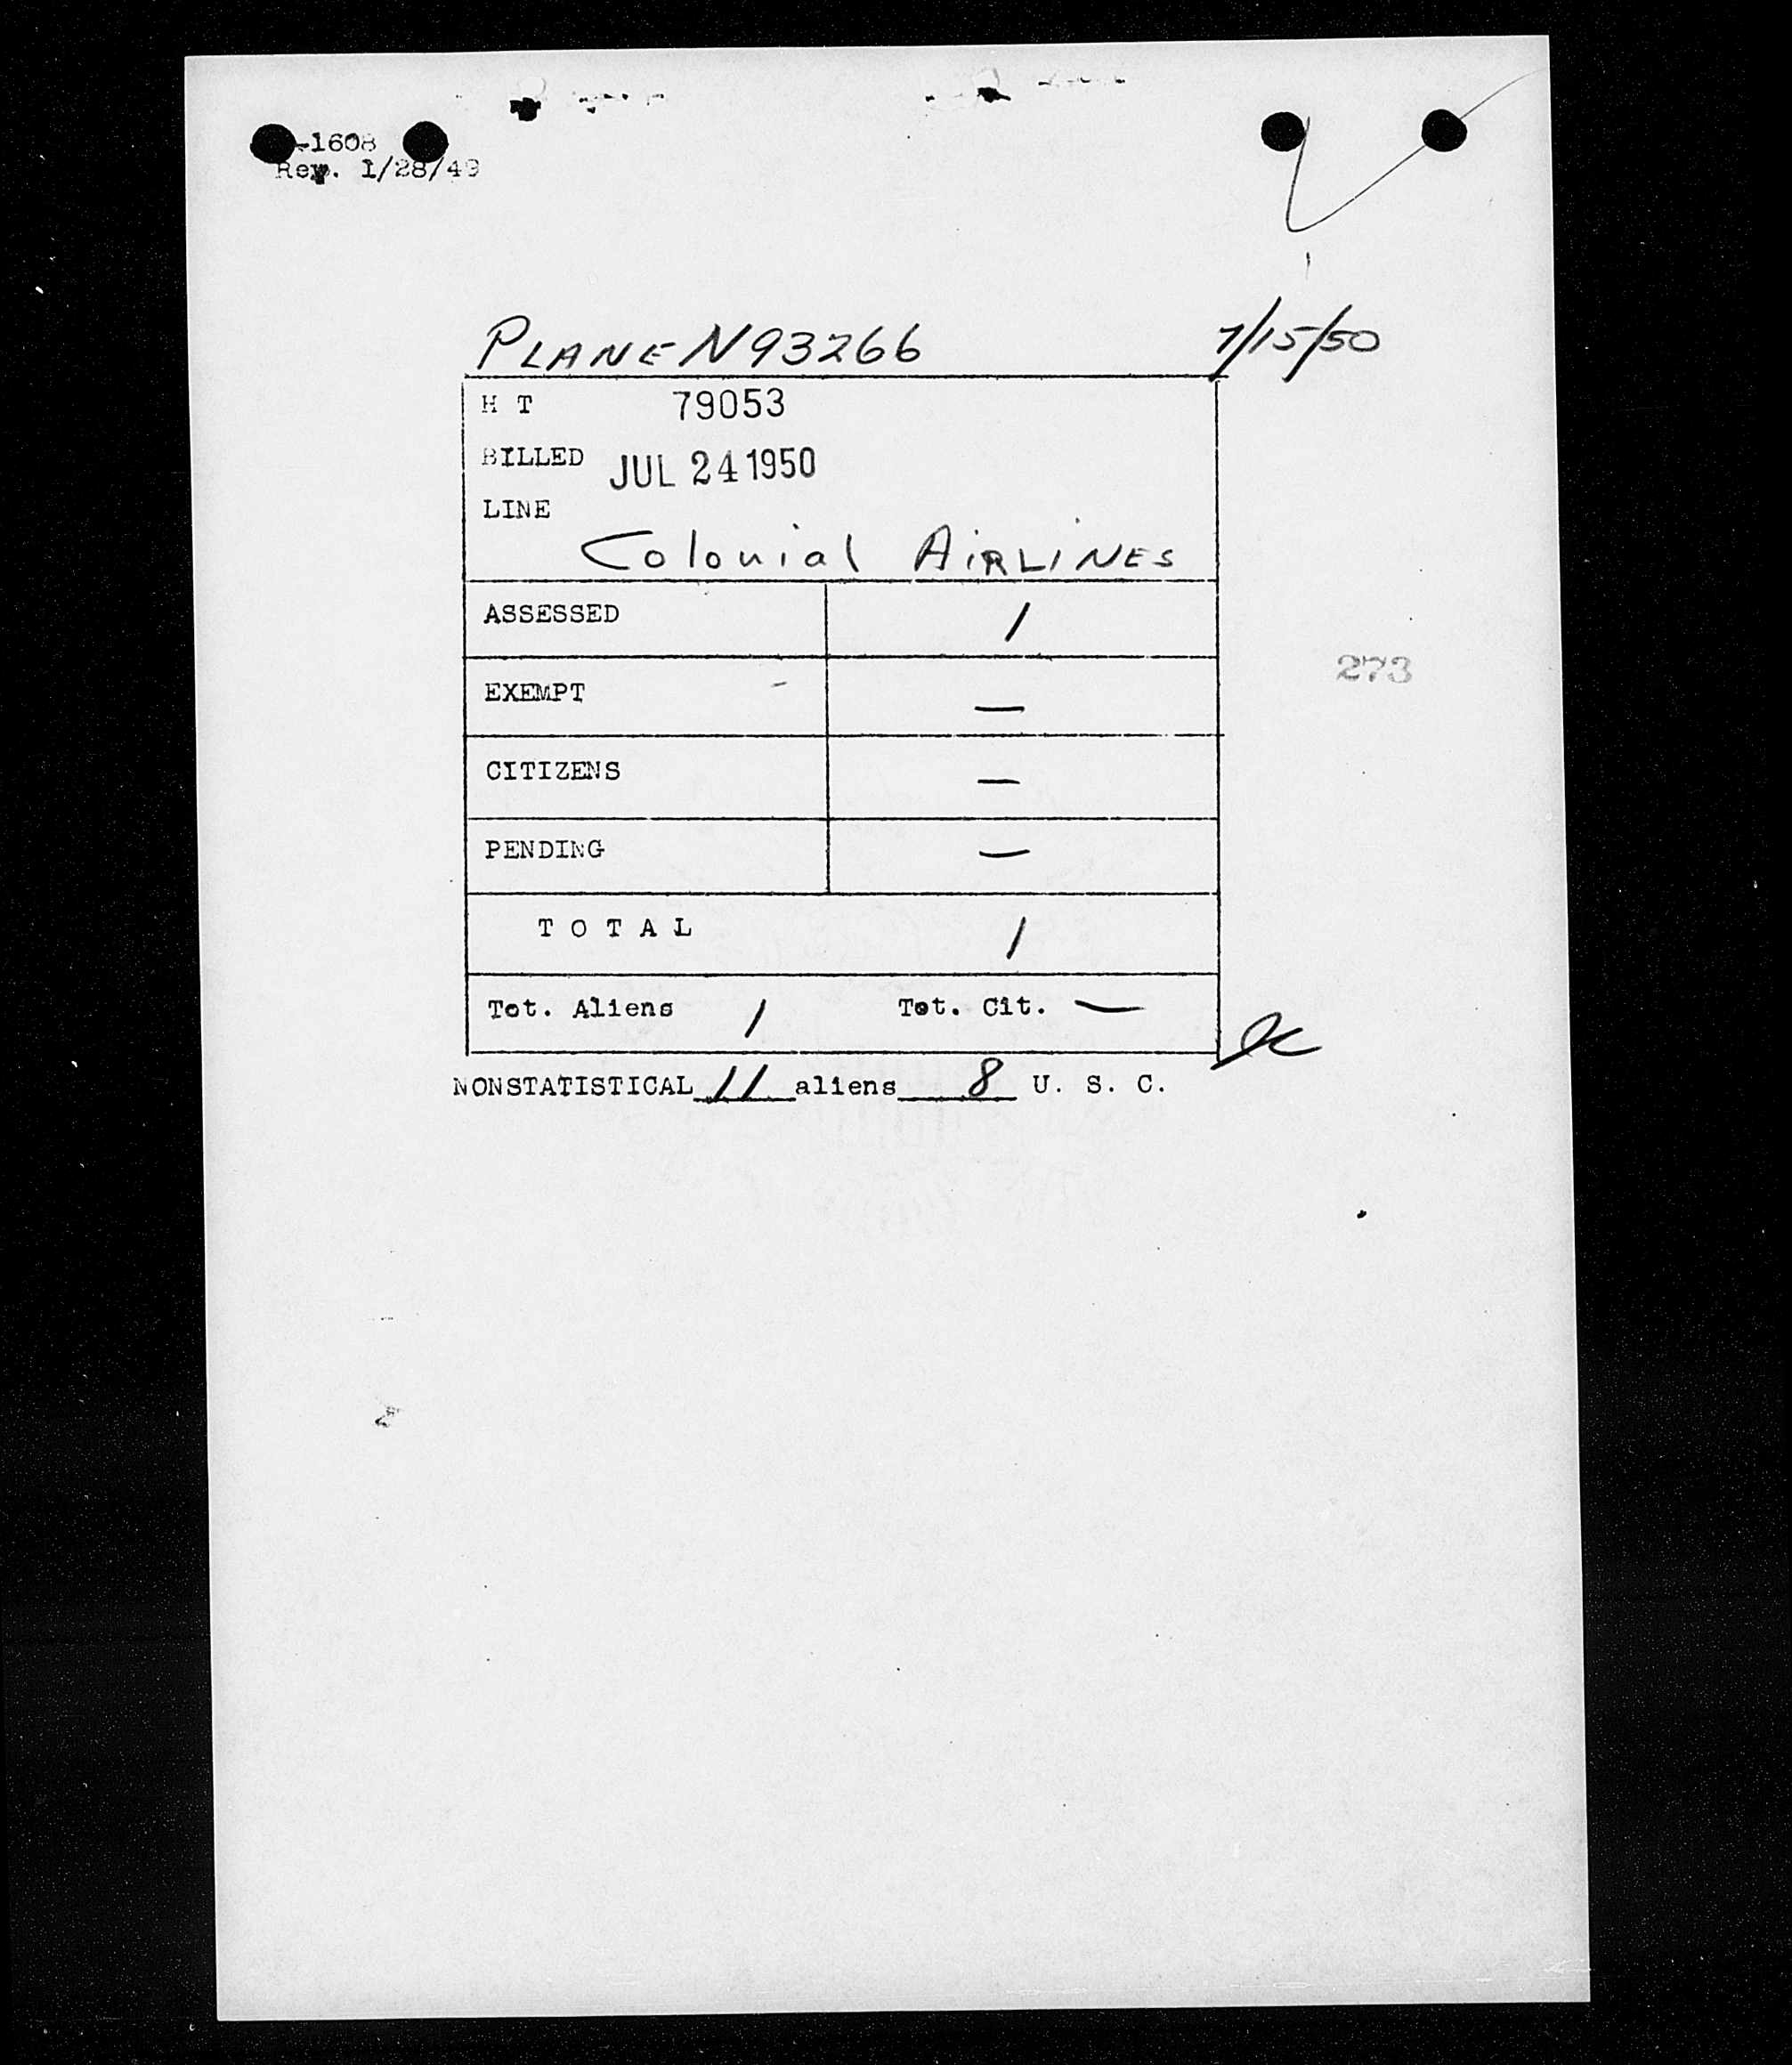 -1608
Rev. 1/28/49
PLANE N93266 7/15/50
H T 79053
BILLED JUL 24 1950
LINE
Colonial AIRLINES
ASSESSED 1
273
EXEMPT —
CITIZENS —
PENDING —
T O T A L 1
Tot. Aliens 1 Tot. Cit. —
NONSTATISTICAL 11 aliens 8 U. S. C.